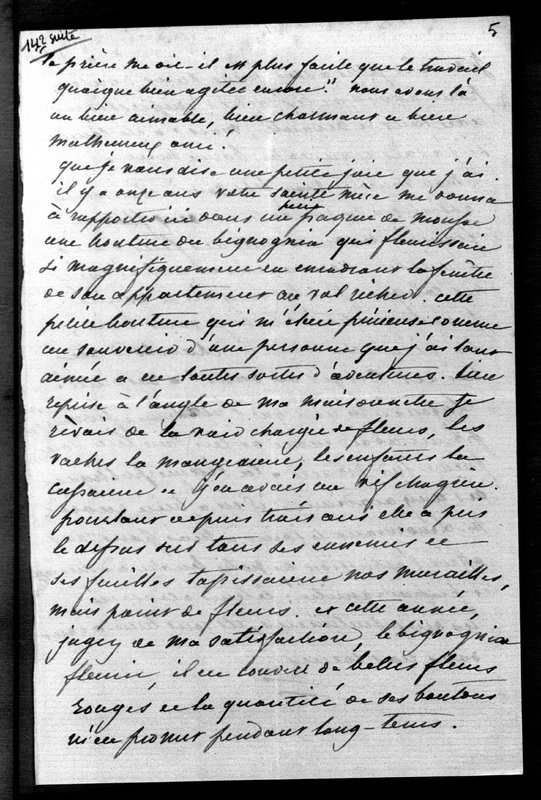 142 suite
5
la prière me dit-il est plus facile que le travail
quoique bien agitée encore." nous avons là
un bien aimable, bien charmant et bien
malheureux ami.
que je vous dise une petite joie que j'ai.
il y a onze ans votre sainte mère me donna
à rapporter ici dans un petit paquet de mousse
une bouture du bignognia qui fleurissait
si magnifiquement en encadrant la fenêtre
de son appartement au val richer. cette
petite bouture qui m'était précieuse comme
un souvenir d'une personne que j'ai tant
aimée a eu toutes sortes d'aventures. bien
reprise à l'angle de ma maisonnette je
rêvais de la voir chargée de fleurs, les
vaches la mangeaient, les enfants la
cassaient et j'en avais un vif chagrin.
pourtant depuis trois ans elle a pris
le dessus sur tous ses ennemis et
ses feuilles tapissaient nos murailles,
mais point de fleurs. et cette année,
jugez de ma satisfaction, le bignognia
fleurit, il est couvert de belles fleurs
rouges et la quantité de ses boutons
m'en promet pendant long-tems.